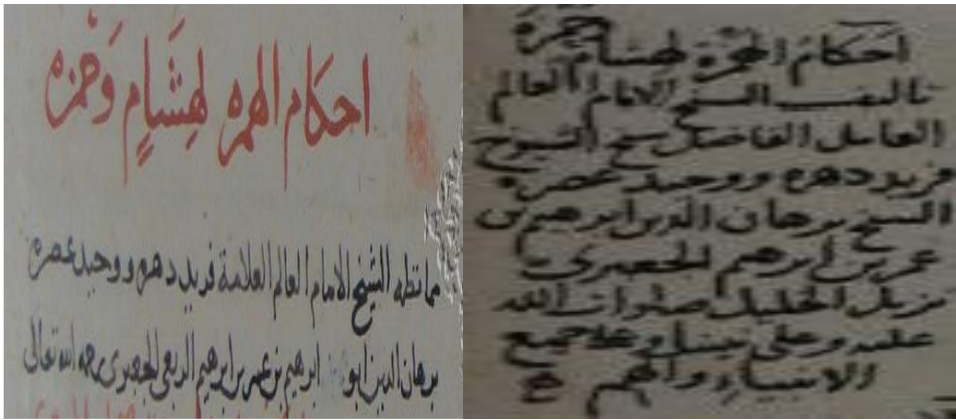 احكام الهمزه لهشام وحمزه
مما نظمه الشيخ الامام العالم العلامة فريد دهره ووحيد عصره
برهان الدين ابو ابرهيم بن عمر بن ابرهيم الربعي الجعبري رحمه الله تعالى
احكام الهمزة لهشام وحمزة
تاليف الشيخ الامام العالم
العامل الفاضل شيخ الشيوخ
فريد دهره ووحيد عصره
الشيخ برهان الدين ابرهيم بن
عمر بن ابرهيم الجعبري
نزيل الخليل صلوات الله
عليه وعلى نبينا وعلا جميع
الانبياء والهم